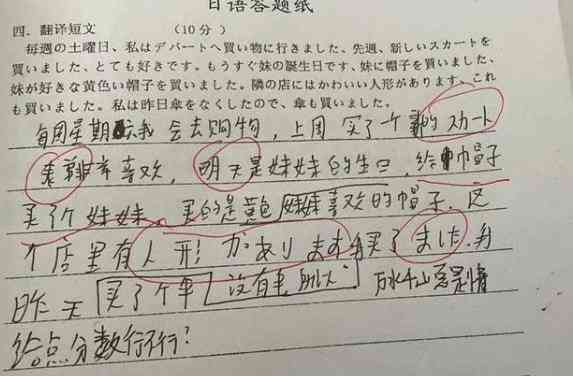 日语答题纸
四．翻译短文 （10分）
毎週の土曜日、私はデパートへ買い物に行きました、先週、新しいスカートを
買いました、とても好きです。もうすぐ妹の誕生日です、妹に帽子を買いました、
妹が好きな黄色い帽子を買いました。隣の店にはかわいい人形があります、これ
も買いました。私は昨日傘をなくしたので、傘も買いました。
每周星期 我会去购物，上周买了个新的スカート
非常喜欢，明天是妹妹的生日，给 帽子
买个妹妹、买的是黄色妹妹喜欢的帽子．这
个店里有人形があります 买了ました．我
昨天买了个伞 没有 所以 万水千山总是情
给点分数行不行？